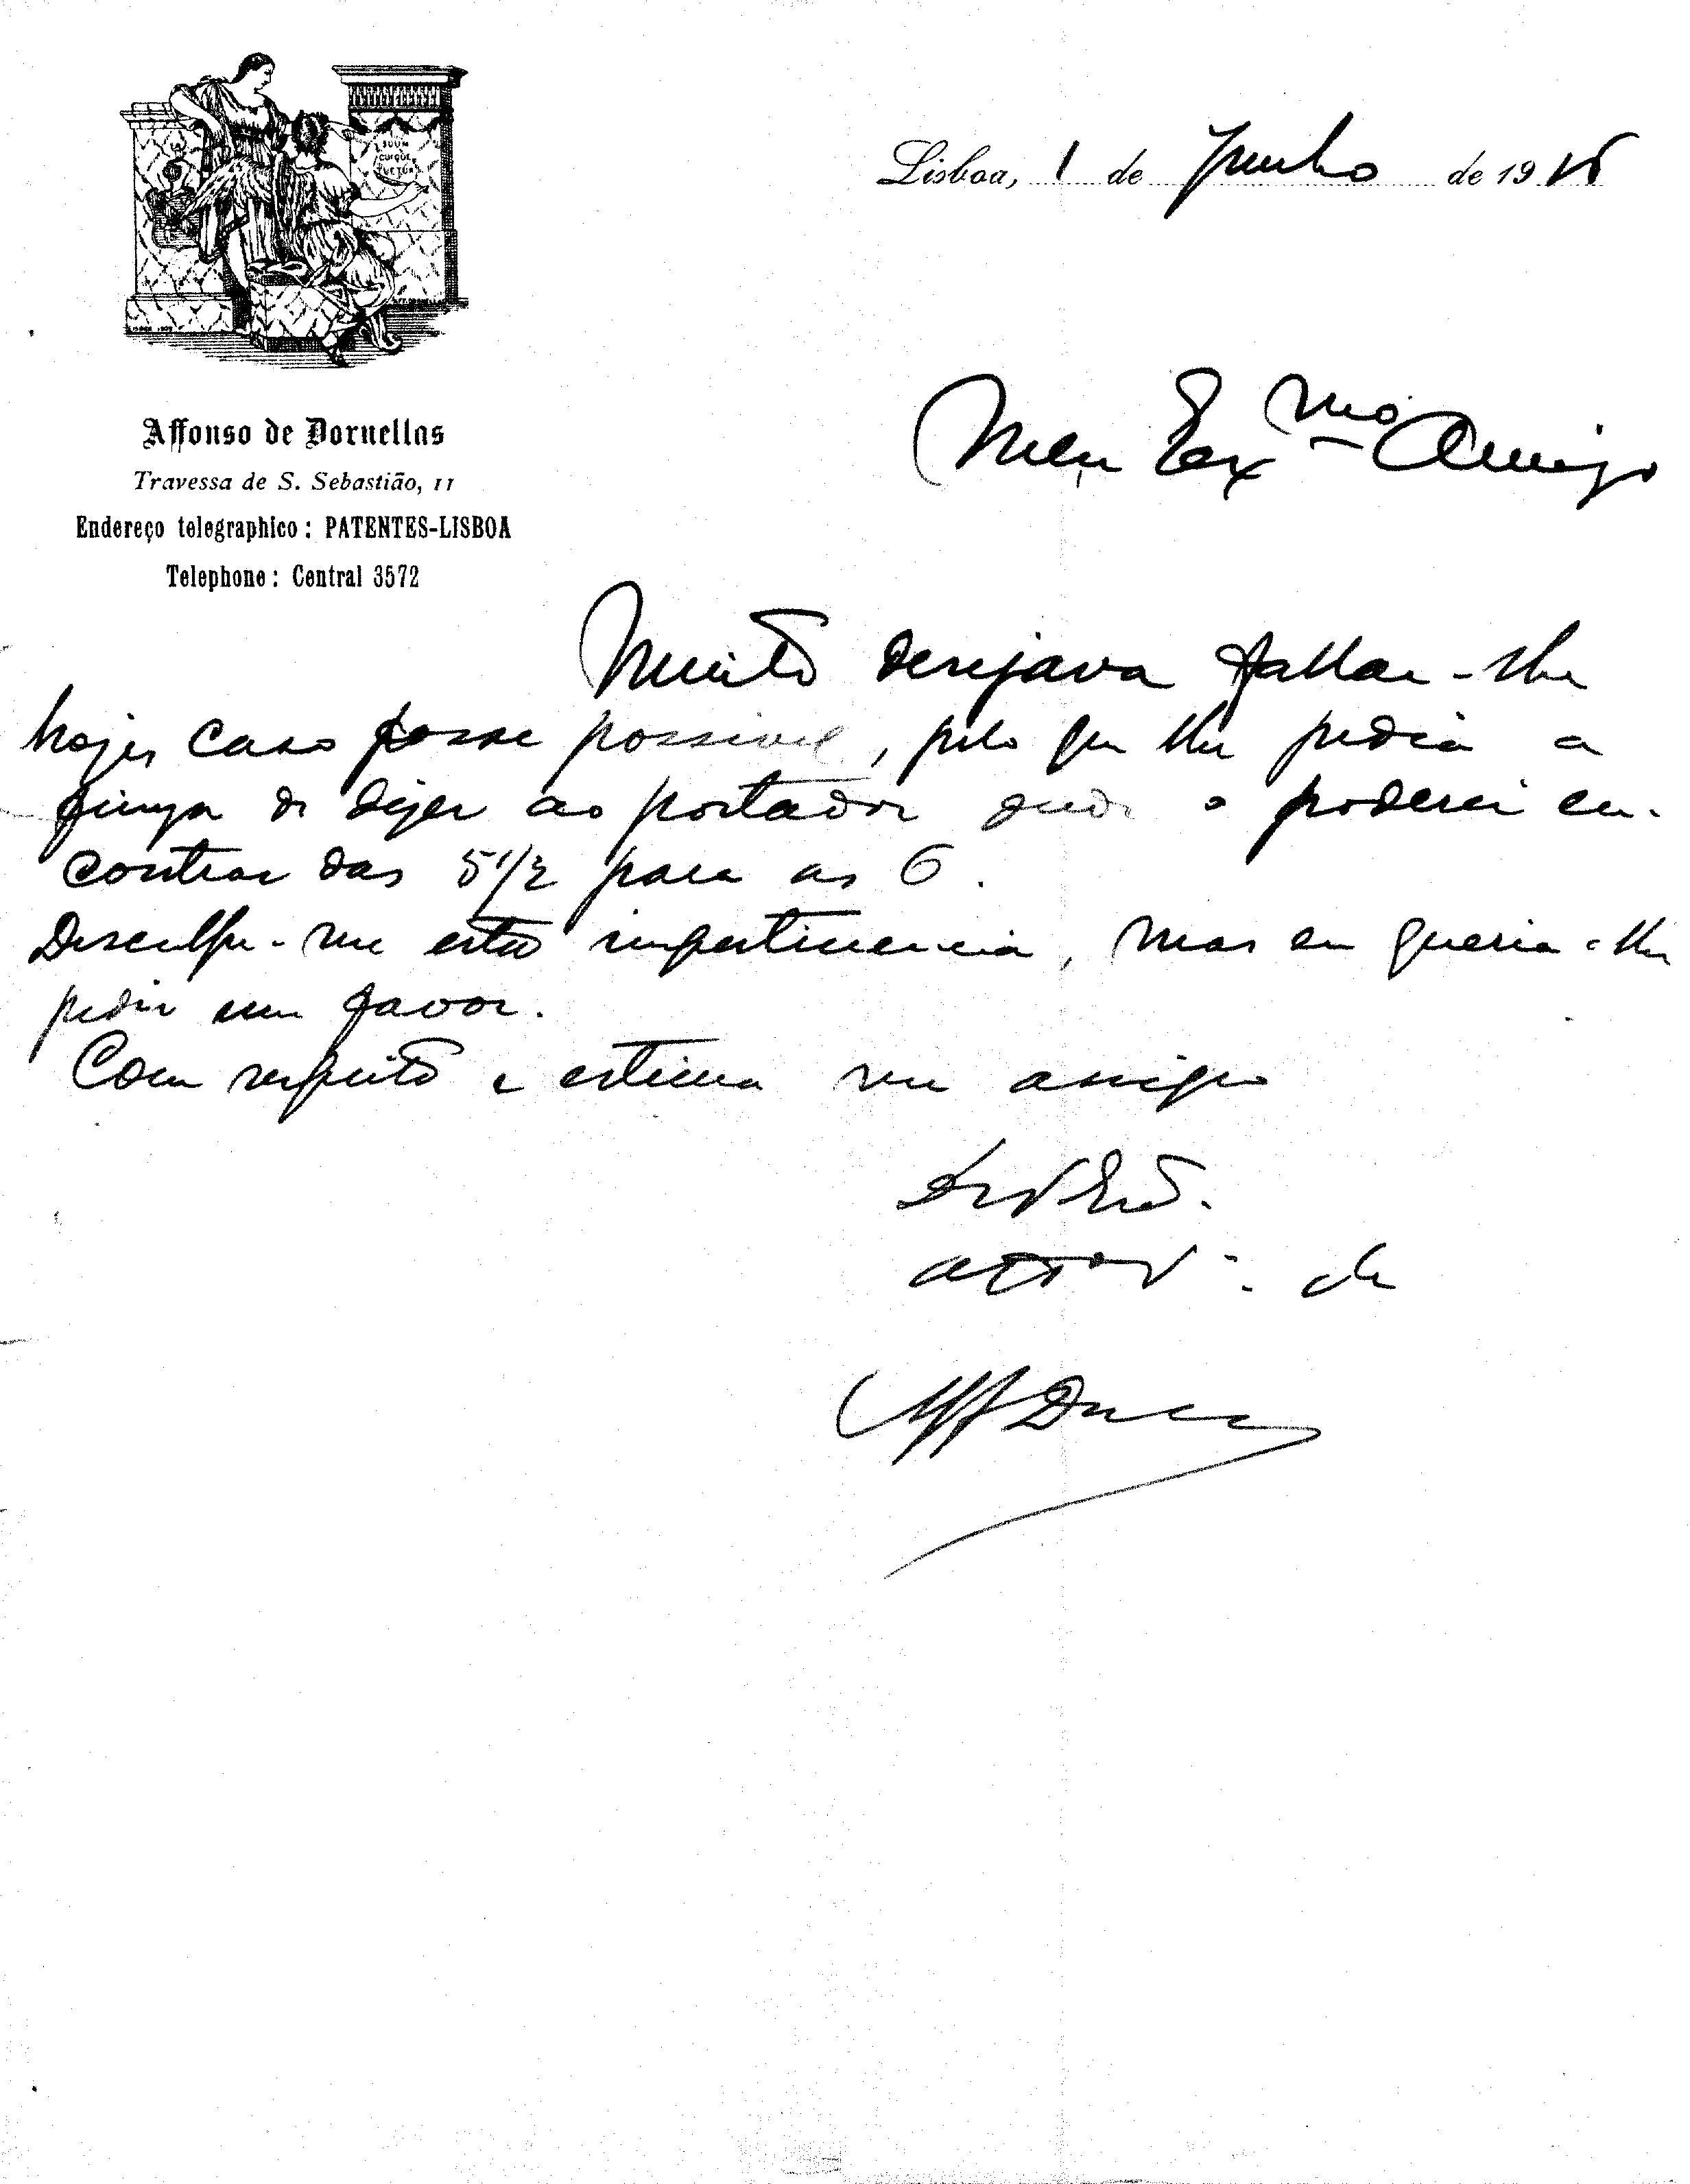 SUUM
CUIQUE
Lisboa, 1 de Junho de 19
Meu Exmo Amigo
Affonso de Dornellas
Travessa de S. Sebastião, 11
Endereço telegraphico: PATENTES-LISBOA
Telephone: Central 3572
Muito desejava fallar-lhe
hoje, caso fosse possivel, pelo que lhe pedia a
fineza de dizer ao portador onde o poderei en-
contrar das 5 1/2 para as 6.
Desculpe-me esta impertinencia, mas eu queria-lhe
pedir um favor.
Com respeito e estima seu amigo
de